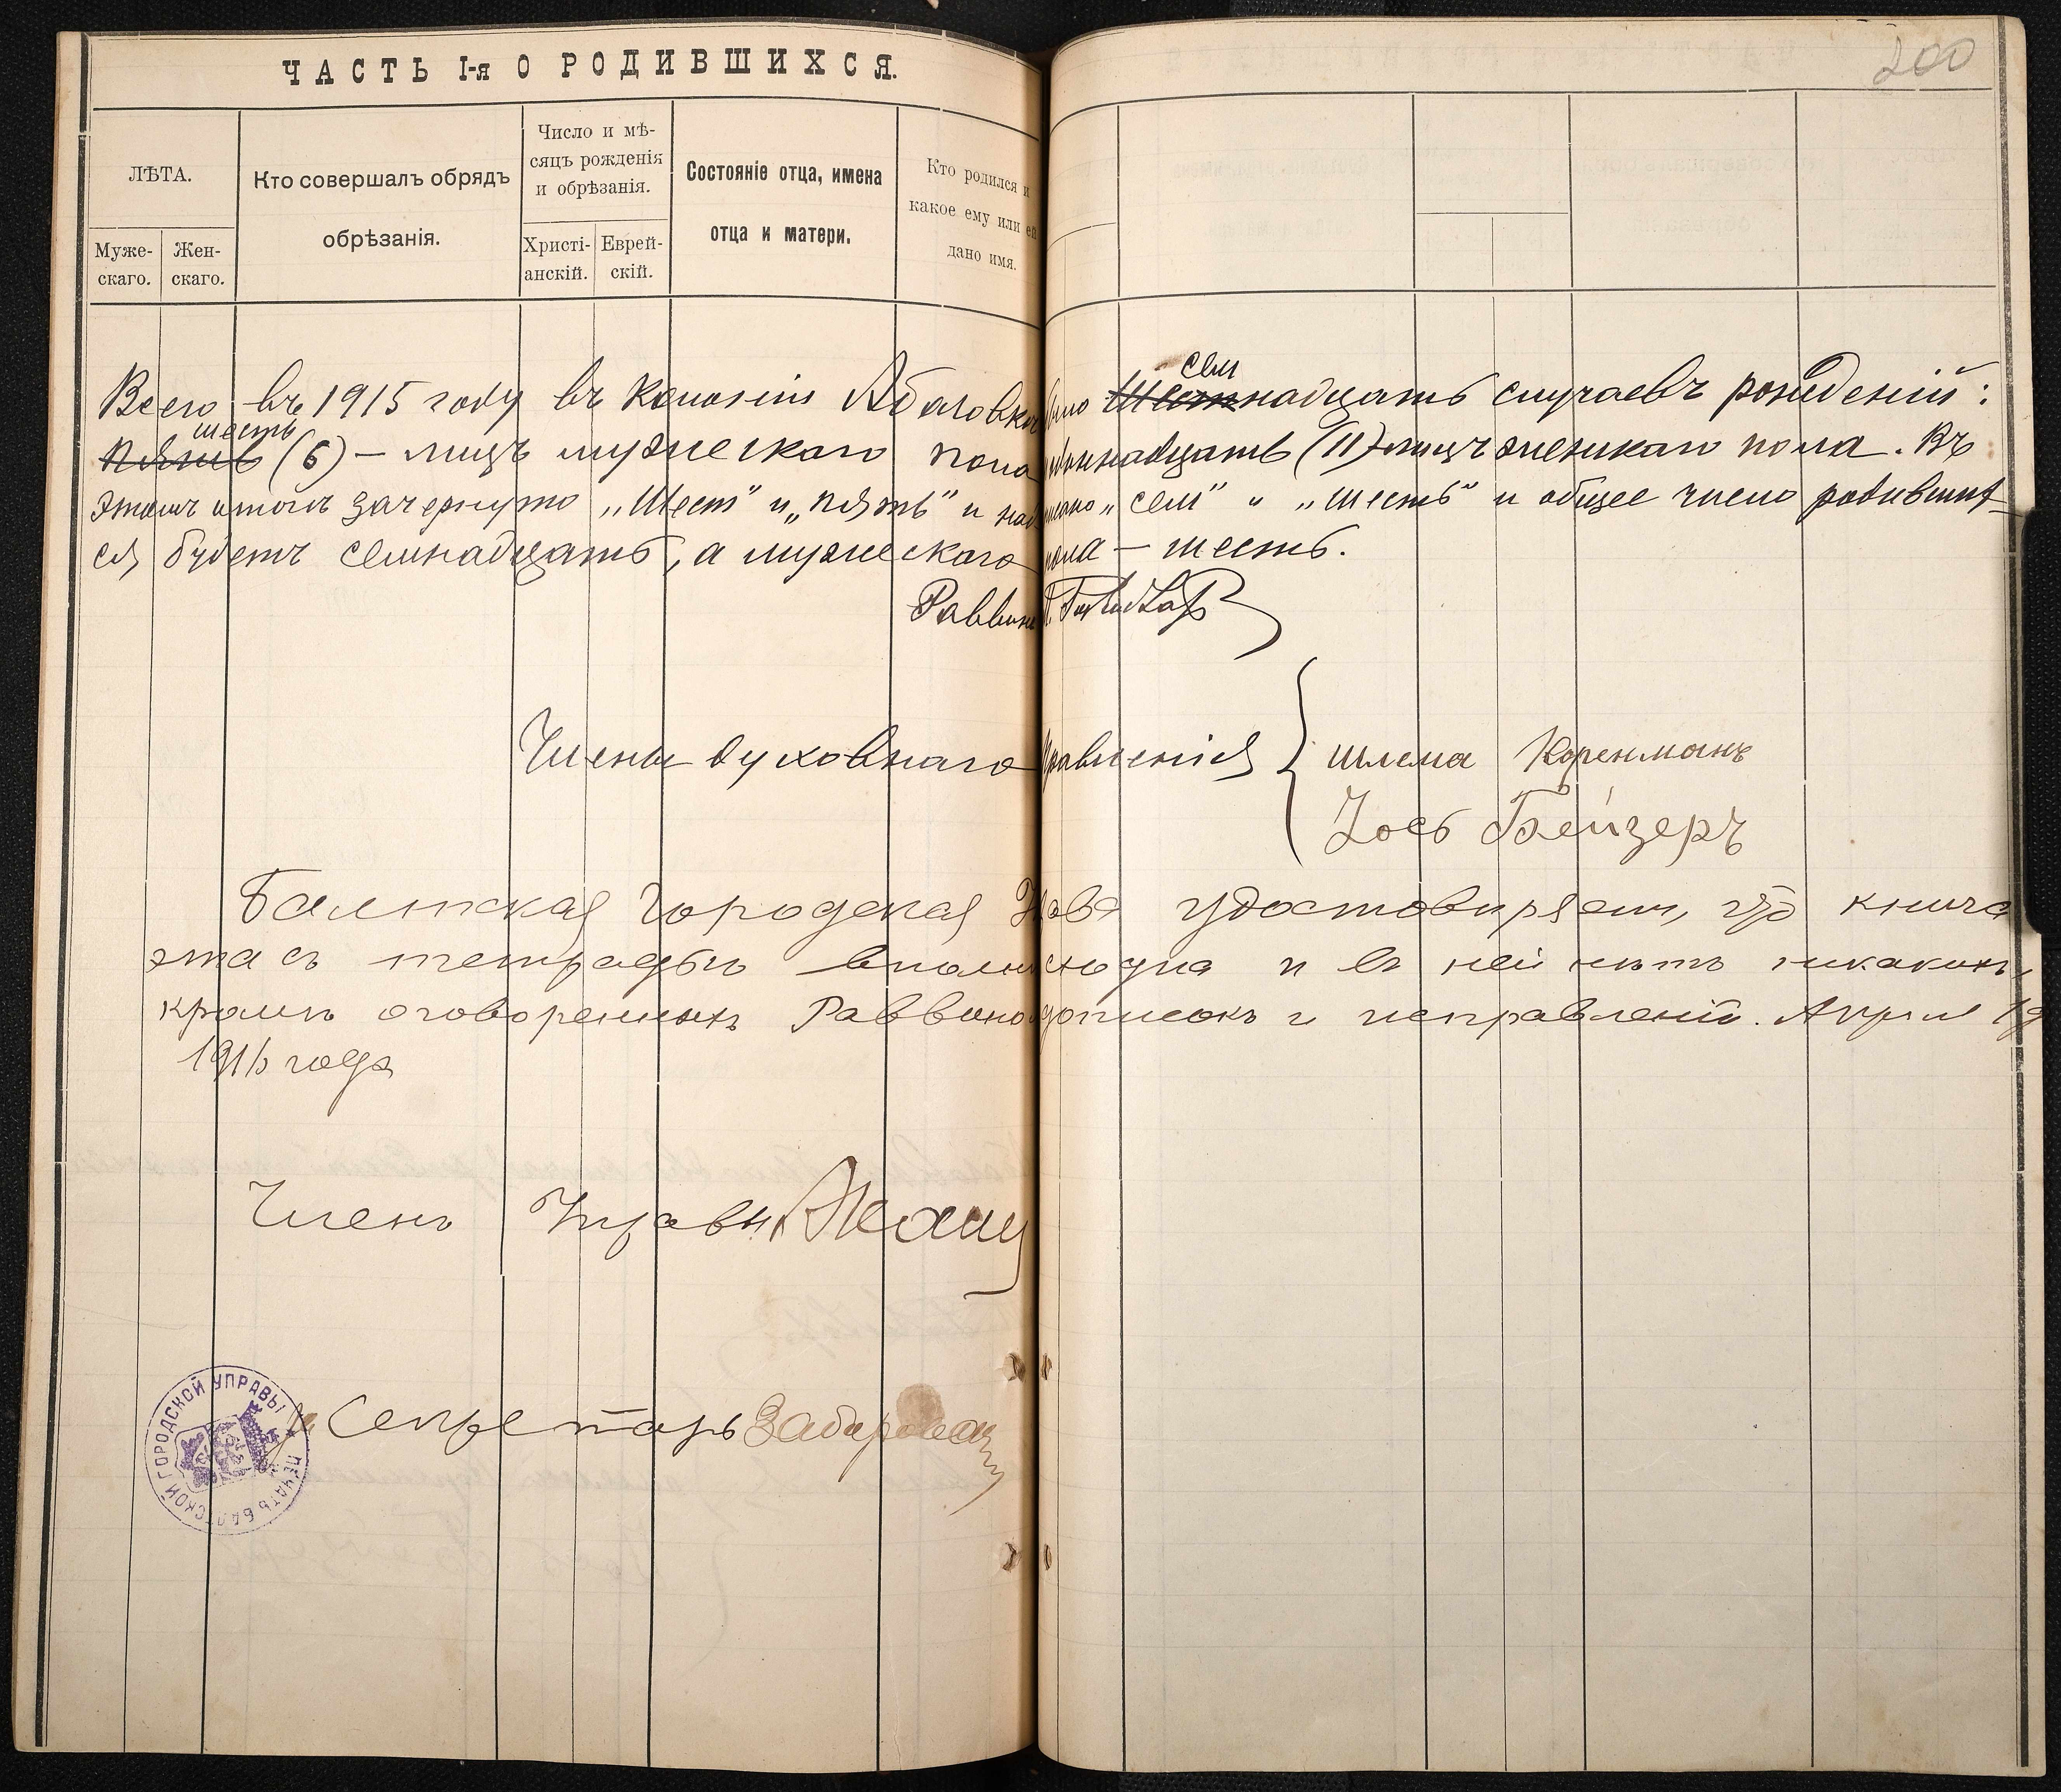 ЧАСТЬ I-я О РОДИВШИХСЯ.
200
ЛѢТА.
Муже-
скаго.
Жен-
скаго.
Кто совершалъ обрядъ
обрѣзанія.
Число и мѣ-
сяцъ рожденія
и обрѣзанія.
Христі-
анскій.
Еврей-
скій.
Состояніе отца, имена
отца и матери.
Кто родился и
какое ему или ей
дано имя.
сем
Всего въ 1915 году въ колоніи Абазовкѣ было Шестнадцать случаевъ рожденій:
шесть
Пять (6) – лицъ мужескаго пола одиннадцать (11) лицъ женскаго пола. Въ
этомъ итогѣ зачеркнуто „Шест" и „пять" и надписано „сем" и „шесть" и общее число родивших-
ся будетъ семнадцать, а мужескаго пола – шесть.
Раввинъ
Члены духовнаго правленія
Шлема Коренманъ
Іось Гейзеръ
Балтская Городская Управа удостовѣряетъ, что книга
эта съ тетрадью вполнѣ сходна и въ ней нѣтъ никакихъ,
кромѣ оговоренныхъ Раввиномъ дописокъ и исправленій. Апрѣля 19
1916 года
Членъ Управы
Секретарь
ПЕЧАТЬ БАЛТСКОЙ ГОРОДСКОЙ УПРАВЫ